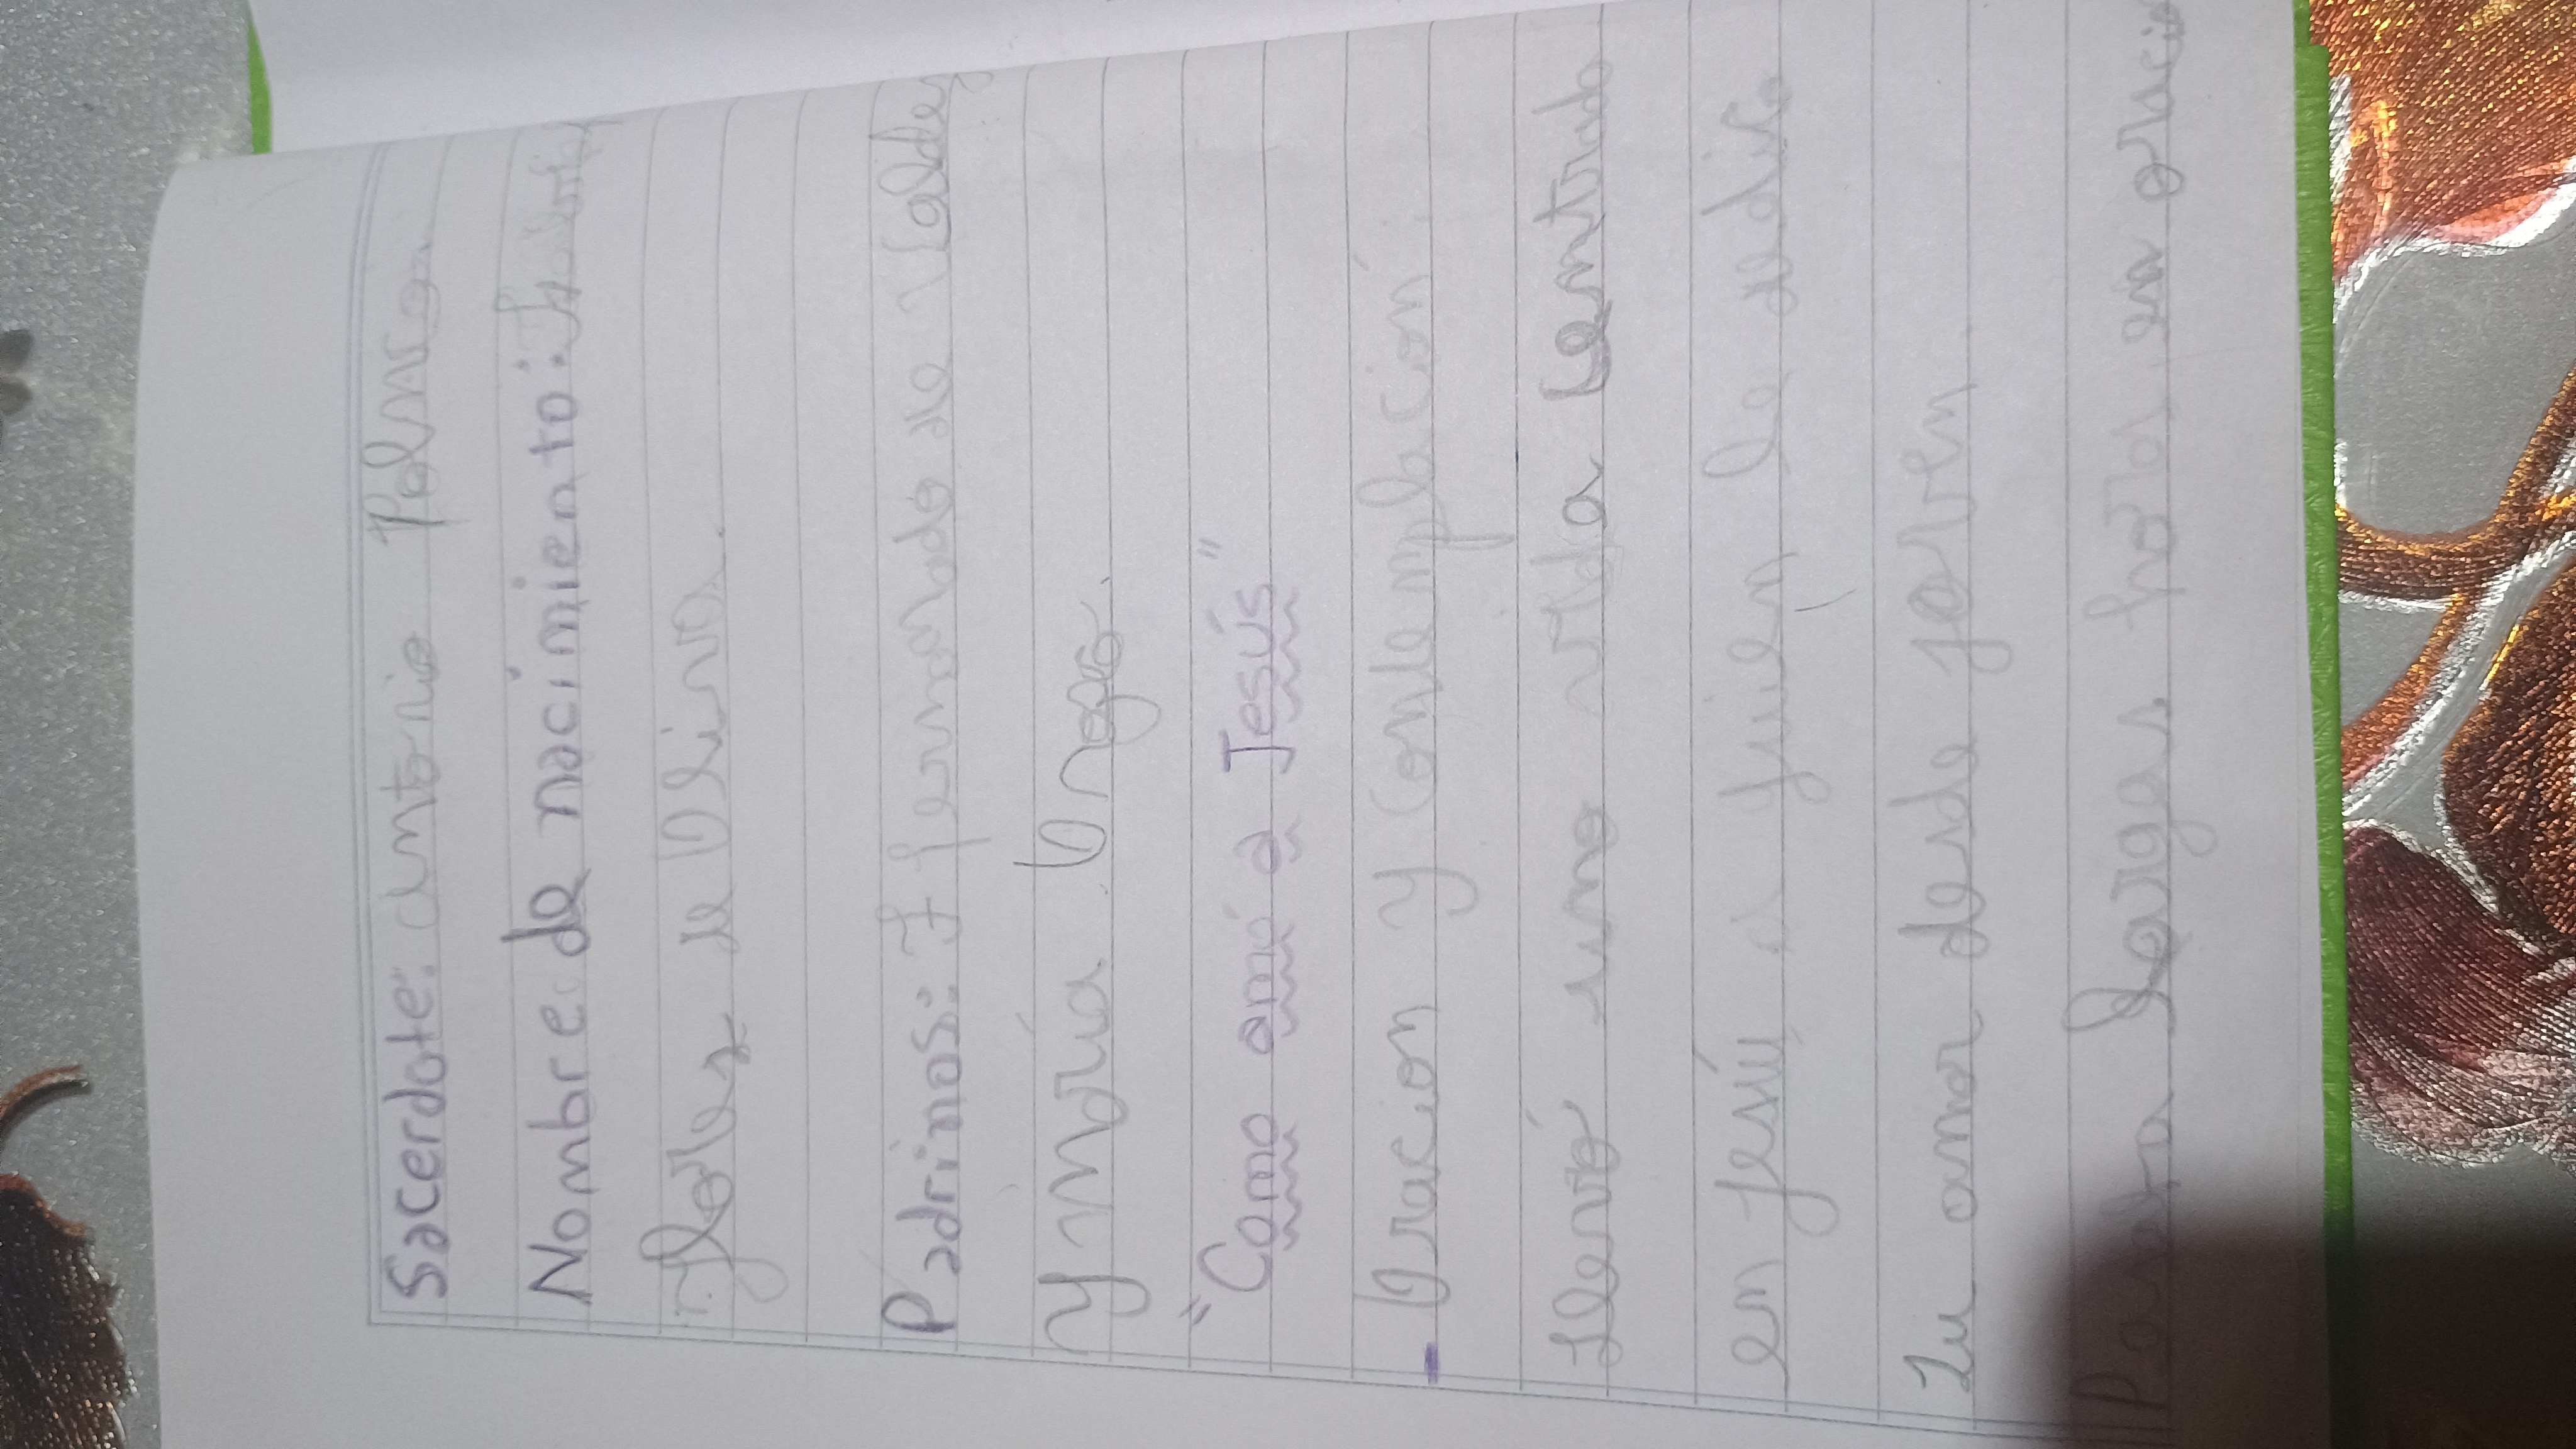 Sacerdote: antonio Polanco.
Nombre de nacimiento: Isabel
Flores de Oliva.
Padrinos: Fernando de Valdez
y María Orozco.
"Como amó a Jesús"
- Oracion y contemplación
Llevó una vida centrada
en Jesús, a quien le dedico
su amor desde joven.
Pasaba largas horas en oración